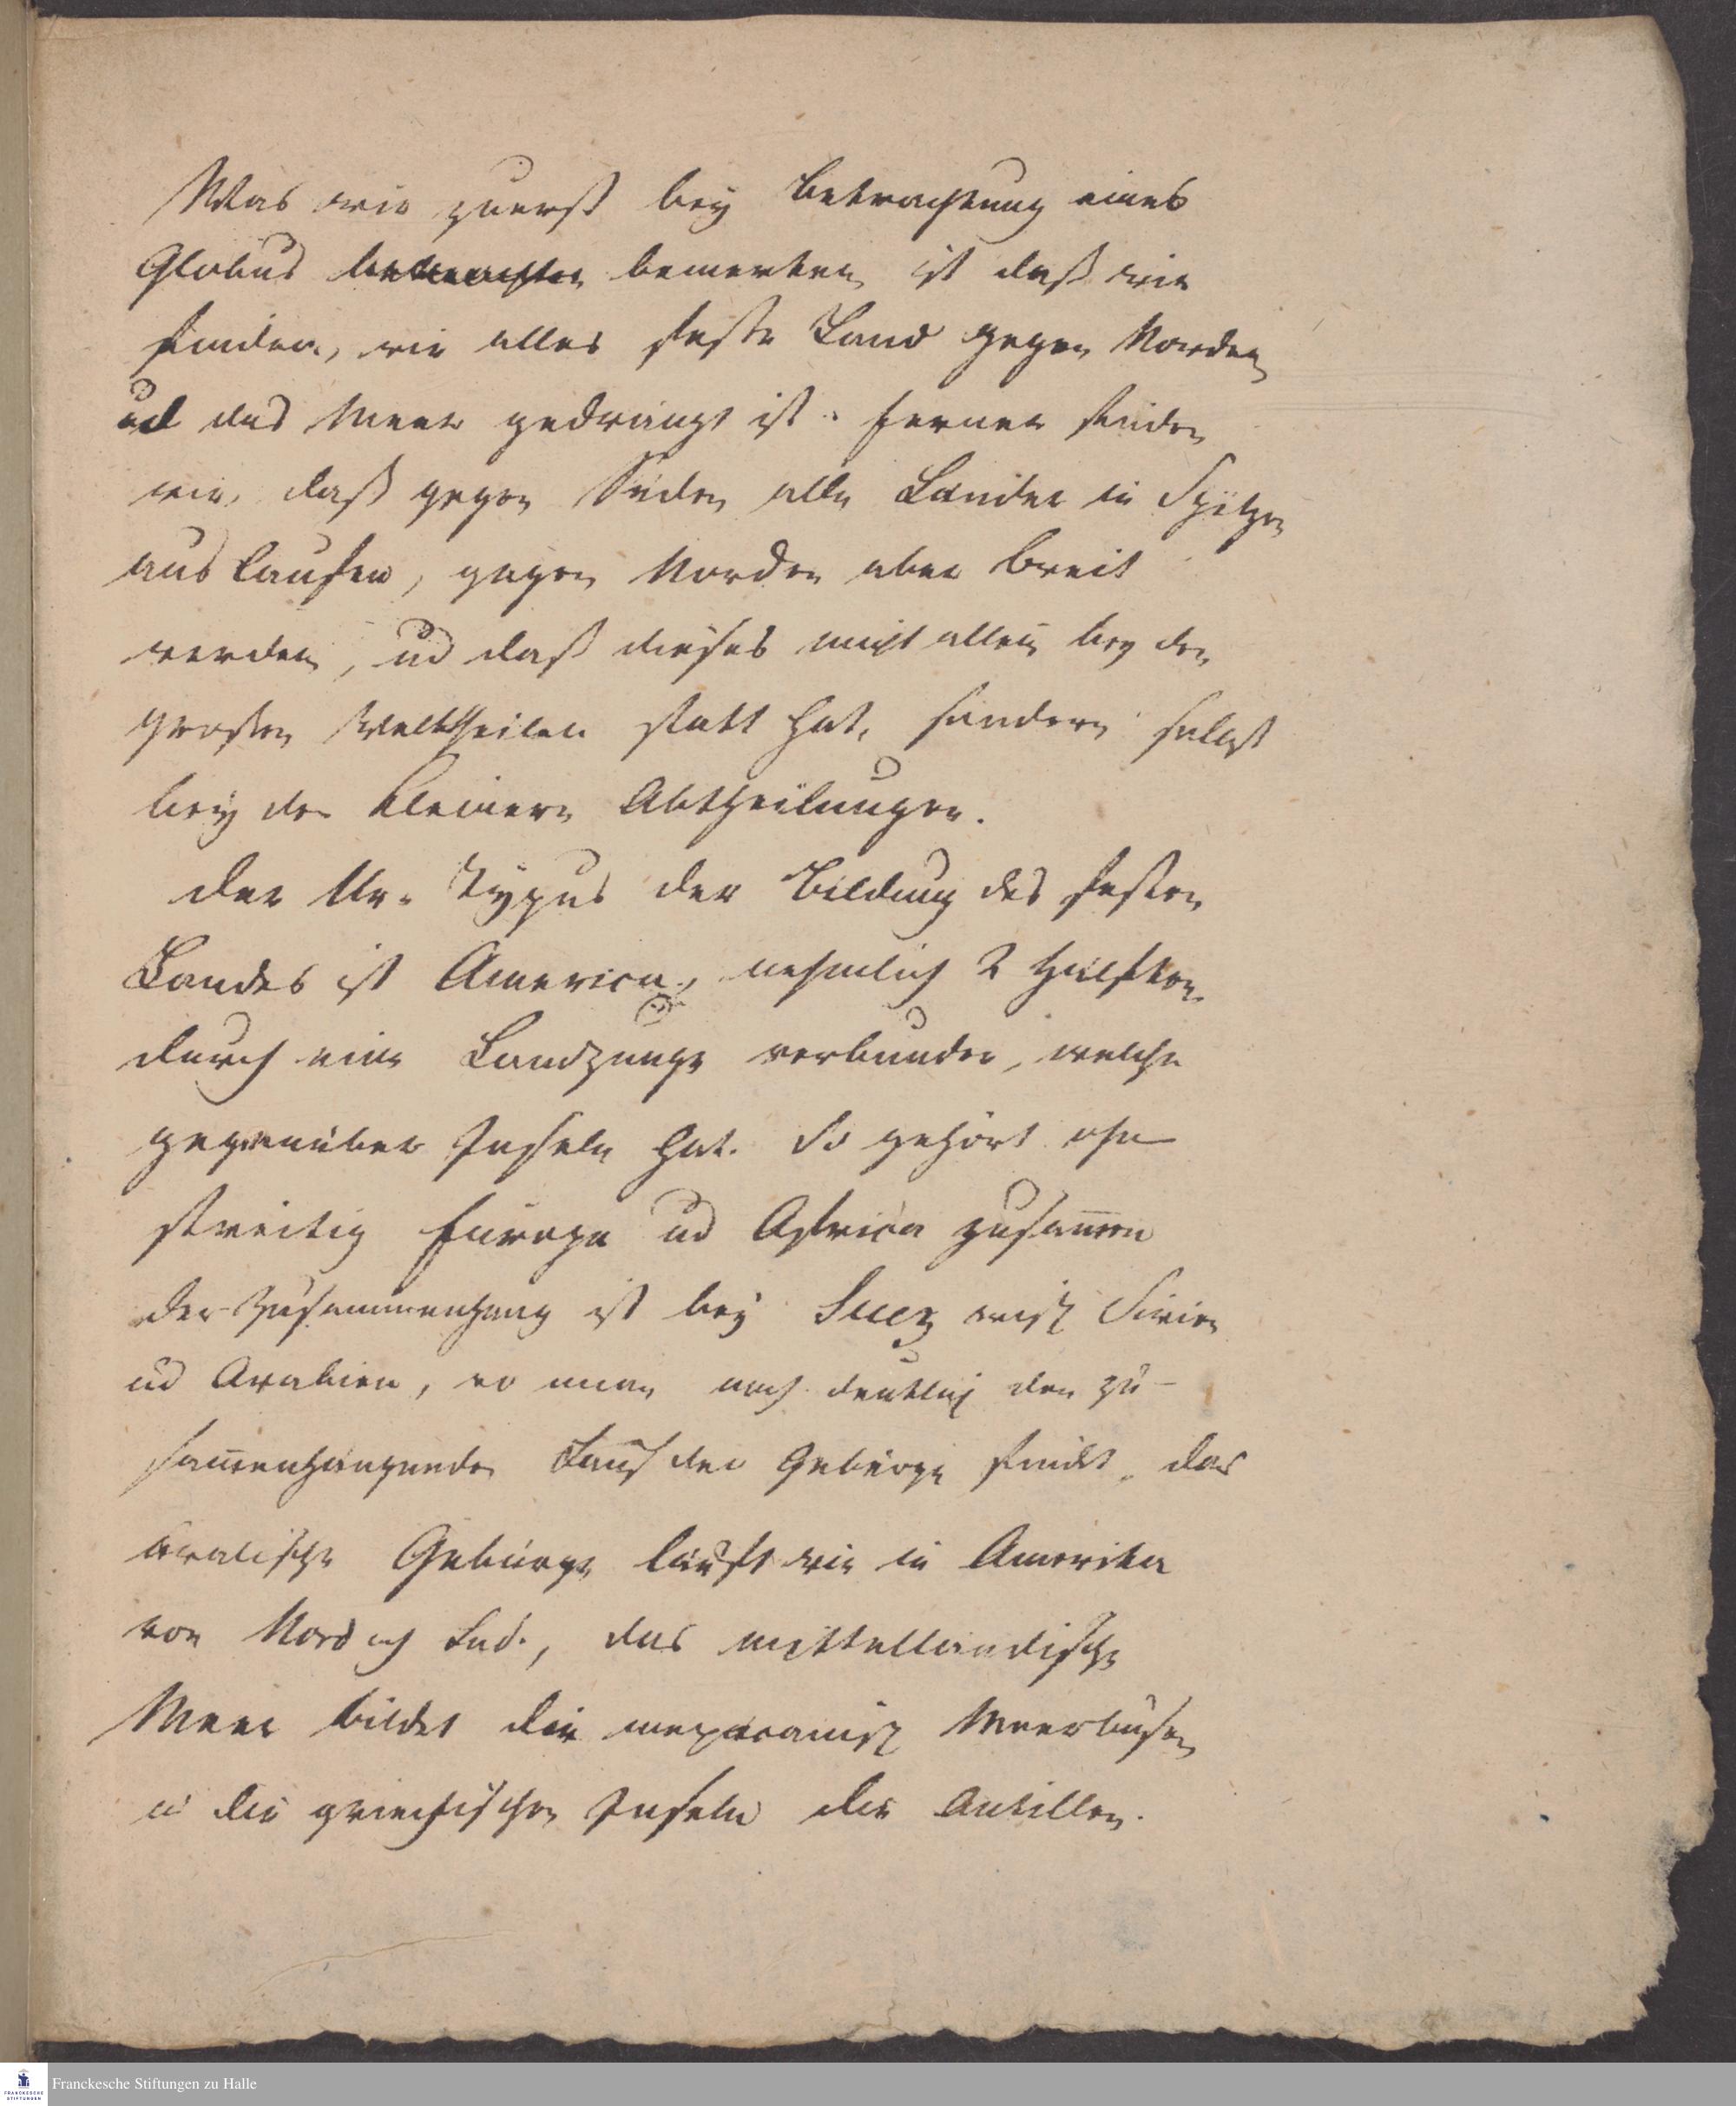 Was wir zuerst bey Betrachtung eines
Globus betrachten bemerken ist daß wir
finden, wie alles feste Land gegen Norden
ud das Meer gedrängt ist. ferner finden
wir, daß gegen Süden alle Länder in Spitzen
aus laufen, gegen Norden aber breit
werden, ud daß dieses nicht allein bey den
großen Welttheilen statt hat, sondern selbst
bey den kleinern Abtheilungen.
Der Ur-Typus der Bildung des festen
Landes ist America, nehmlich 2 Hälften
durch eine Landzunge verbunden, welche
gegenüber Inseln hat. So gehört ohn
streitig Europa ud Africa zusam̅en
der Zusammenhang ist bey Suez Sirien
ud Arabien, wo man noch deutlich den zu-
sam̅enhängenden Lauf der Gebürge findet, das
uralische Gebürge läuft wie in Amerika
von Nord nch Sud., das mittelländische
Meer bildet die mexicanisch Meerbusen
u die griechischen Inseln die Antillen.
Franckesche Stiftungen zu Halle